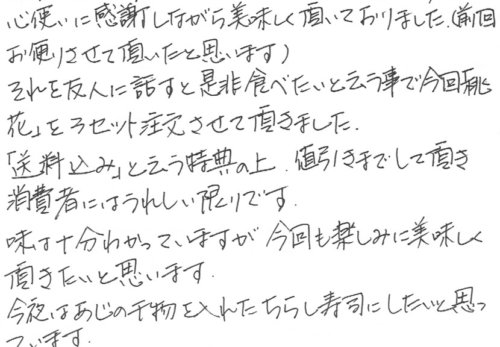 心使いに感謝しながら美味しく頂いておりました.(前回
お便りさせて頂いたと思います)
それを友人に話すと是非食べたいと云う事で今回「桃
花」を3セット注文させて頂きました.
「送料込み」と云う特典の上、値引きまでして頂き
消費者にはうれしい限りです.
味は十分わかっていますが今回も楽しみに美味しく
頂きたいと思います.
今夜はあじの干物を入れたちらし寿司にしたいと思っ
ています.